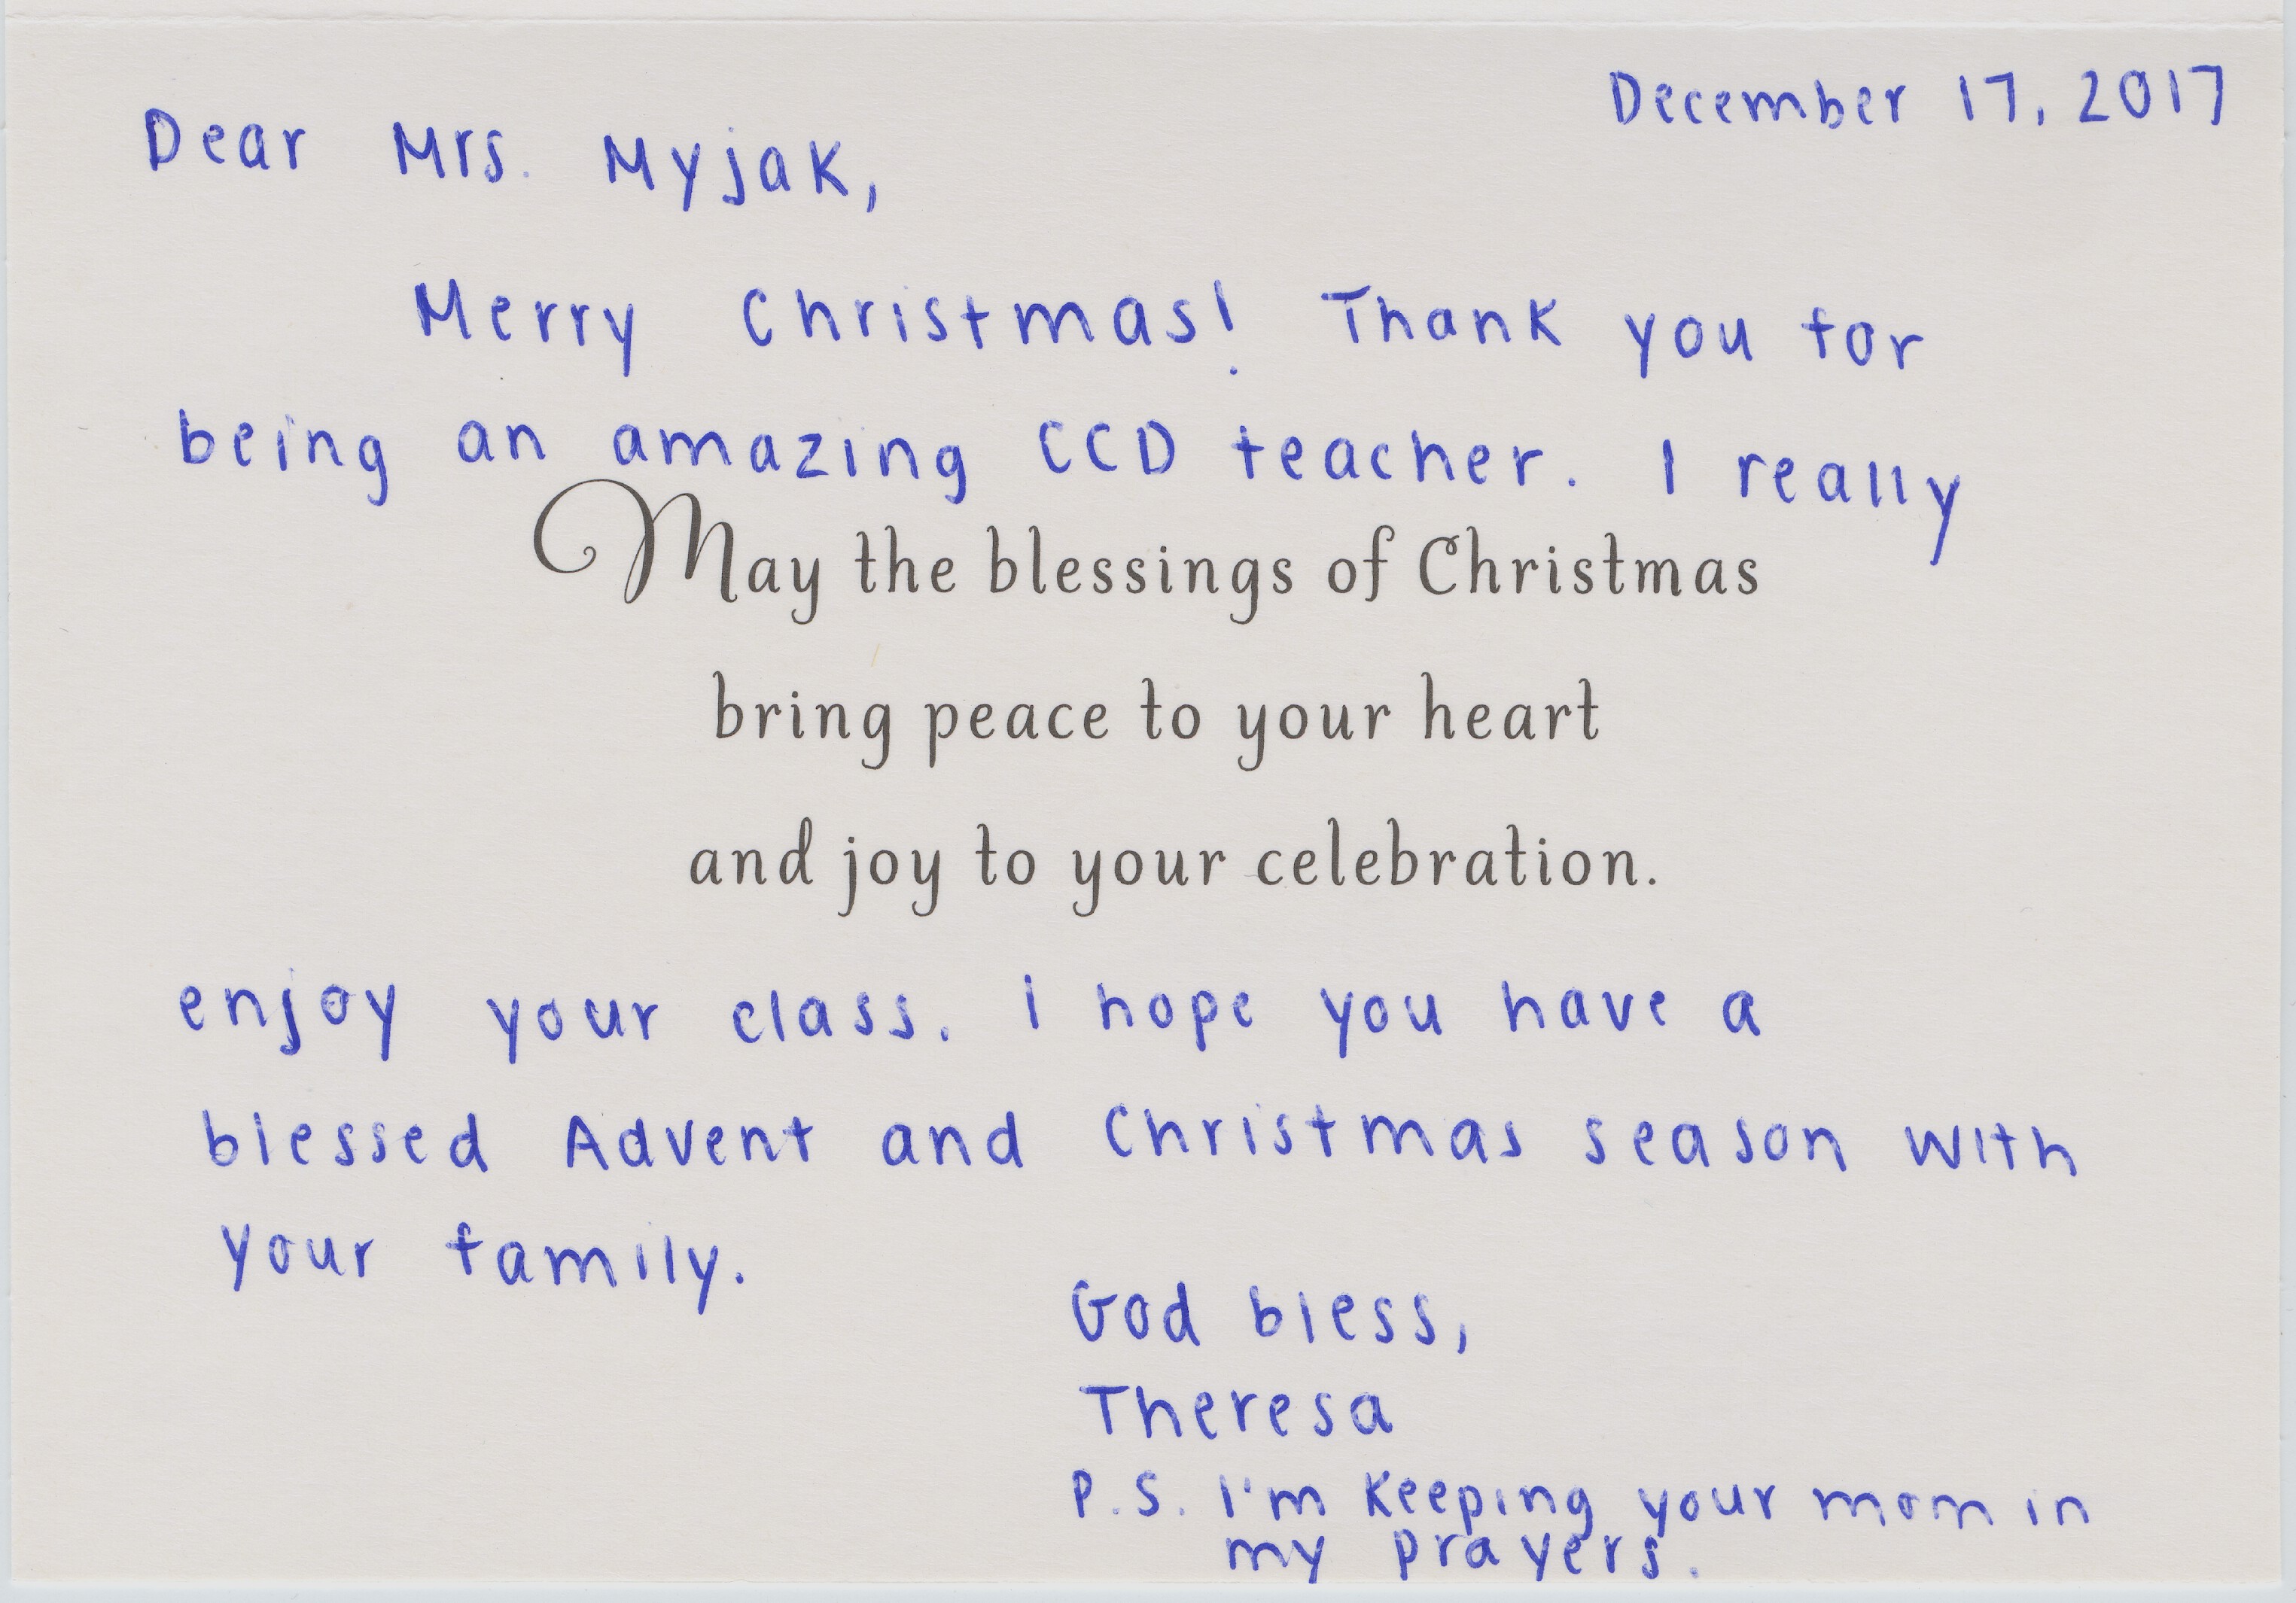 December 17, 2017
Dear Mrs. Myjak,
Merry Christmas! Thank you for
being an amazing CCD teacher. I really
May the blessings of Christmas
bring peace to your heart
and joy to your celebration.
enjoy your class. I hope you have a
blessed Advent and Christmas season with
your family.
God bless,
Theresa
P.S. I'm keeping your mom in
my prayers.